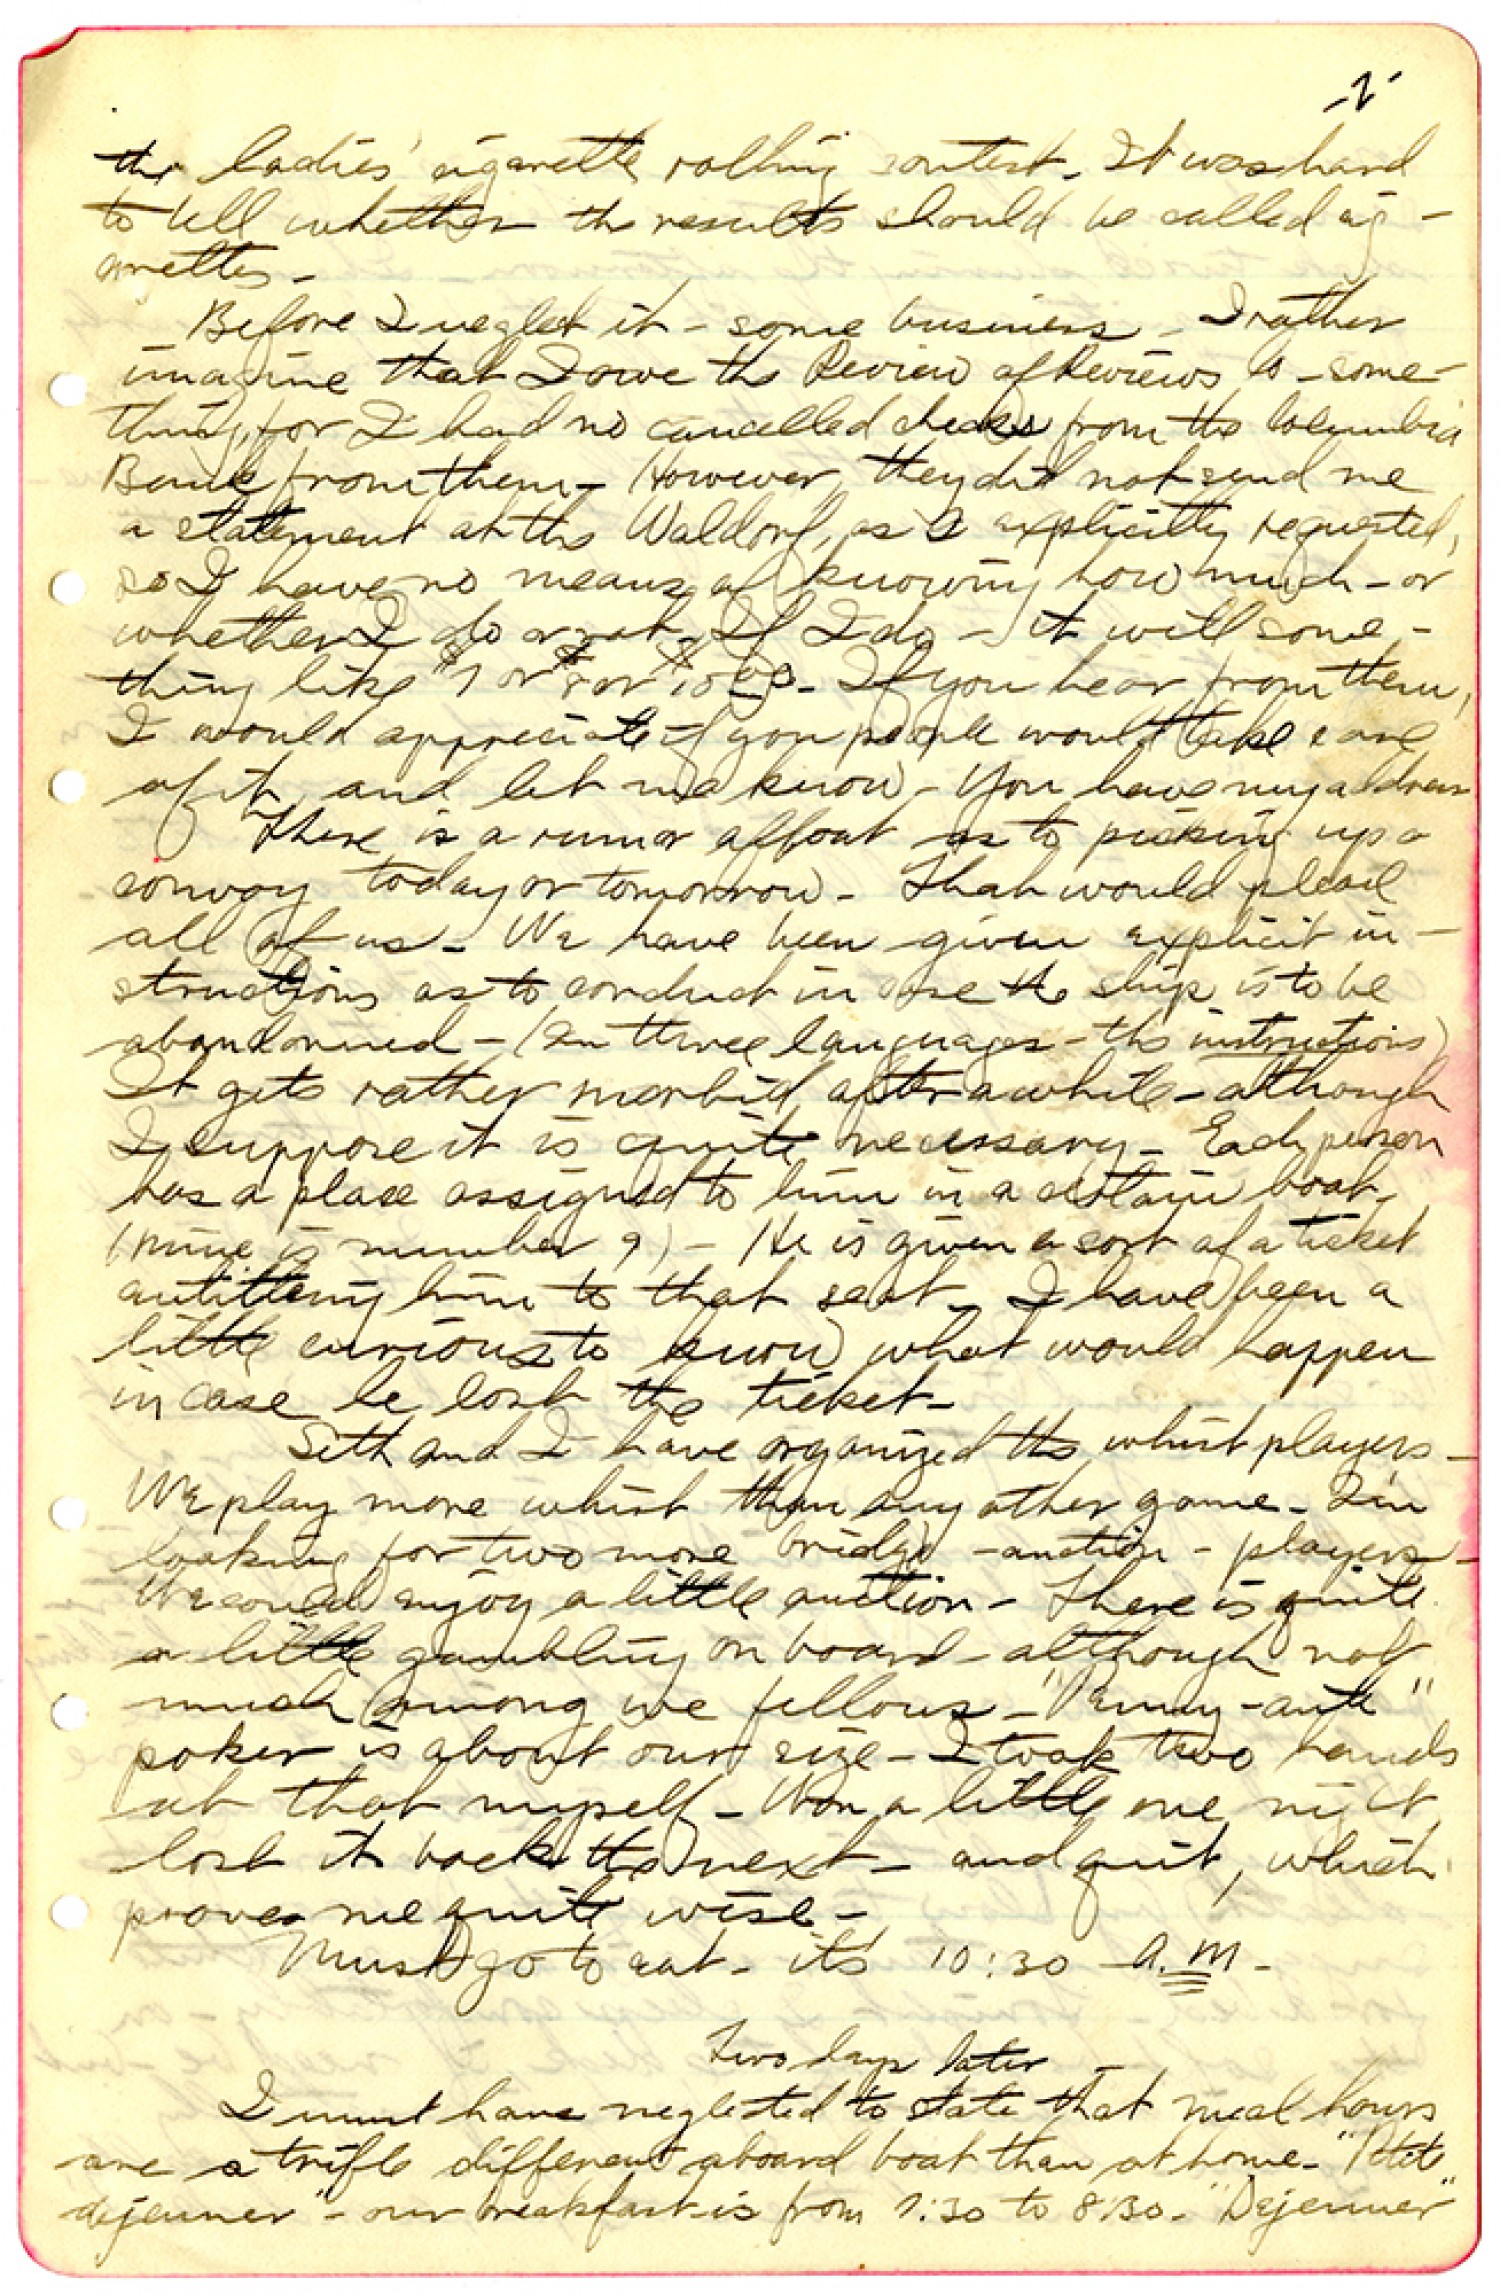 -2-
the ladies' cigarette rolling contest. It was hard
to tell whether the results should be called cig-
arettes -
Before I neglect it - some business - I rather
imagine that I owe the Review of Reviews Co - some-
thing, for I had no cancelled checks from the Columbia
Bank from them - However, they did not send me
a statement at the Waldorf, as I explicitly requested,
so I have no means of knowing how much - or
whether I do or not. If I do - it will some-
thing like $7 or $8 or $10.00 - If you hear from them,
I would appreciate if you people would take care
of it, and let me know - You have my address
There is a rumor afloat as to picking up a
convoy today or tomorrow - That would please
all of us - We have been given explicit in-
structions as to conduct in case the ship is to be
abandonned - (In three languages - the instructions)
It gets rather morbid after awhile - although
I suppose it is quite necessary - Each person
has a place assigned to him in a certain boat,
(mine is number 9) - He is given a sort of a ticket
entitling him to that seat - I have been a
little curious to know what would happen
in case he lost the ticket -
Seth and I have organized the whist players -
We play more whist than any other game - I'm
looking for two more bridge - auction - players -
We could enjoy a little auction - There is quite
a little gambling on board - although not
much among we fellows - "Penny-ante"
poker is about our size - I took two hands
at that myself - Won a little one night
lost it back the next - and quit, which
proves me quite wise -
Must go to eat - it's 10:30 A.M. -
Two days later -
I must have neglected to state that meal hours
are a trifle different aboard boat than at home - "Petite
dejeuner" - our breakfast is from 7:30 to 8:30 - "Dejeuner"